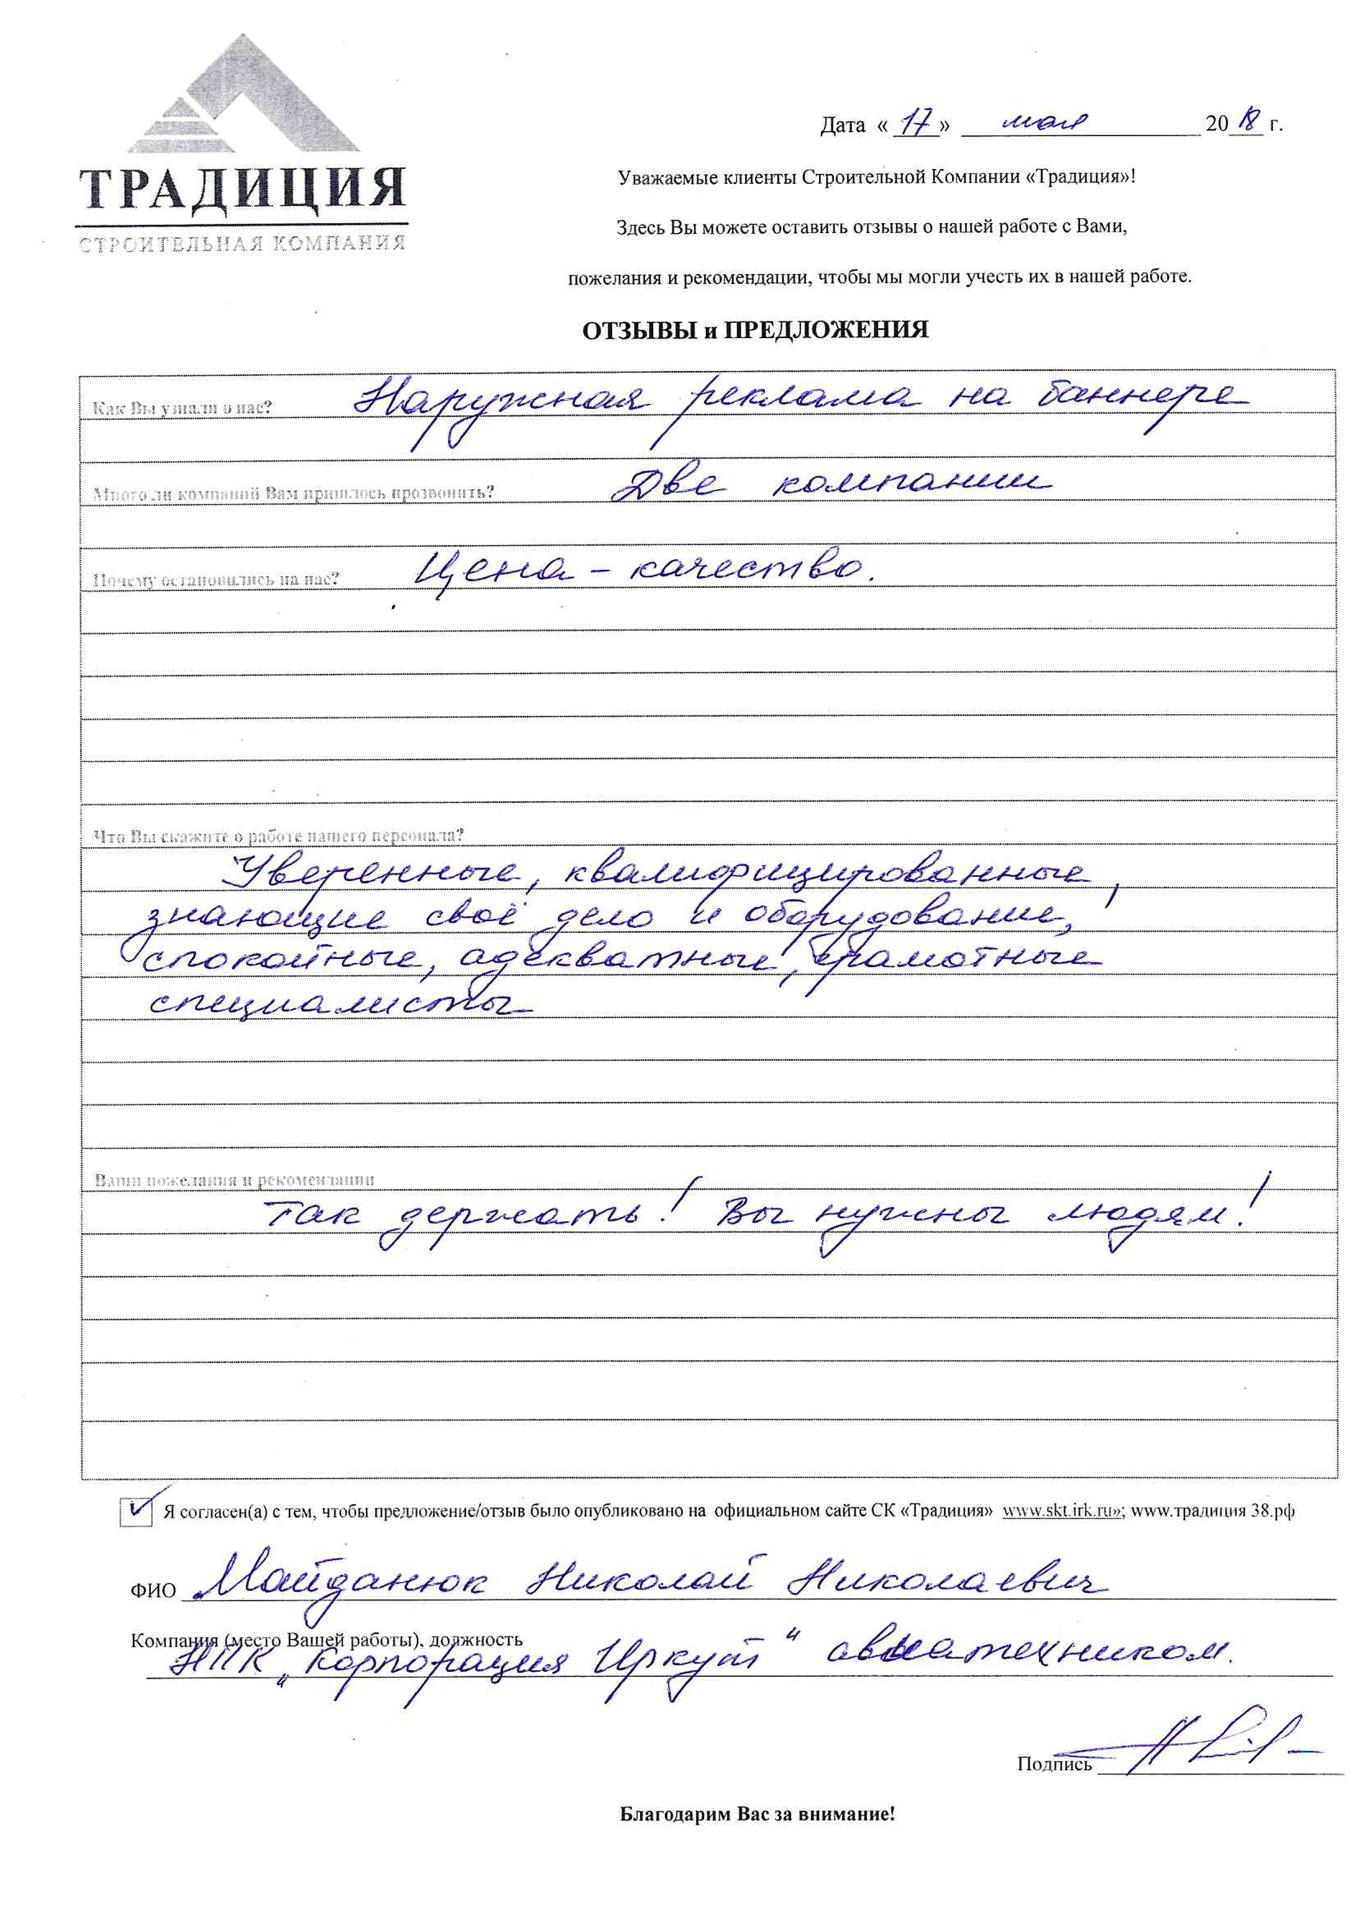 ТРАДИЦИЯ
СТРОИТЕЛЬНАЯ КОМПАНИЯ
Дата «17» мая 2018 г.
Уважаемые клиенты Строительной Компании «Традиция»!
Здесь Вы можете оставить отзывы о нашей работе с Вами,
пожелания и рекомендации, чтобы мы могли учесть их в нашей работе.
ОТЗЫВЫ и ПРЕДЛОЖЕНИЯ
Как Вы узнали о нас? Наружная реклама на баннере
Много ли компаний Вам пришлось прозвонить? Две компании
Почему остановились на нас? Цена - качество.
Что Вы скажите о работе нашего персонала?
Уверенные, квалифицированные,
знающие своё дело и оборудование,
спокойные, адекватные, грамотные
специалисты
Ваши пожелания и рекомендации
Так держать! Вы нужны людям!
Я согласен(а) с тем, чтобы предложение/отзыв было опубликовано на официальном сайте СК «Традиция» www.skt.irk.ru»; www.традиция 38.рф
ФИО Майданюк Николай Николаевич
Компания (место Вашей работы), должность
НПК „Корпорация Иркут" авиатехником.
Подпись
Благодарим Вас за внимание!